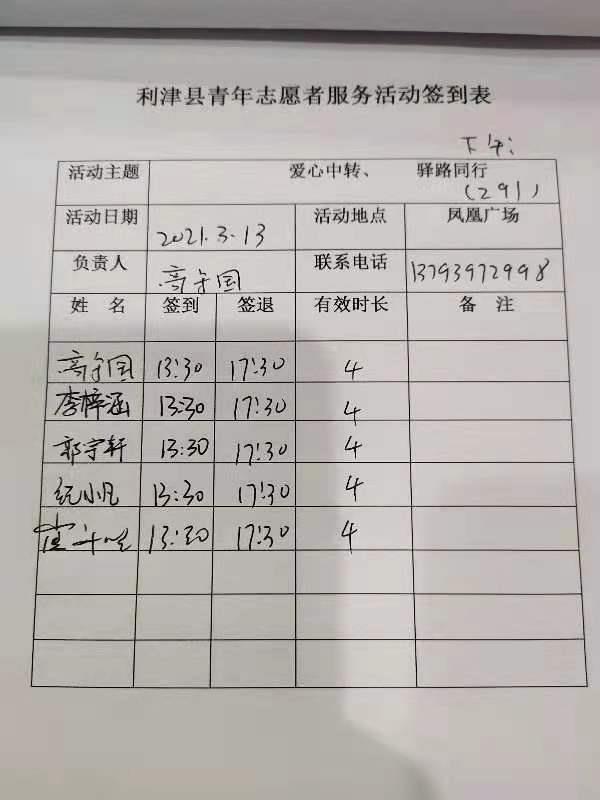 利津县青年志愿者服务活动签到表
下午:
活动主题 爱心中转、 驿路同行
(291)
活动日期 2021.3.13 活动地点 凤凰广场
负责人 高守国 联系电话 13793972998
姓 名 签到 签退 有效时长 备 注
高守国 13:30 17:30 4
李梓涵 13:30 17:30 4
郭宇轩 13:30 17:30 4
纪小凡 13:30 17:30 4
13:30 17:30 4